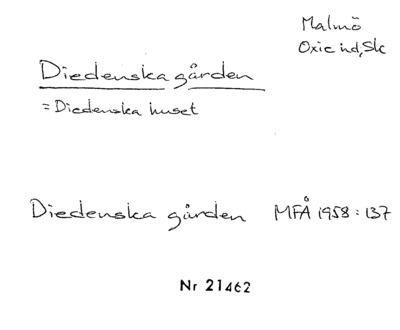 Malmö
Oxie hd, Sk
Diedenska gården
= Diedenska huset
Diedenska gården MFÅ 1958: 137
Nr 21462